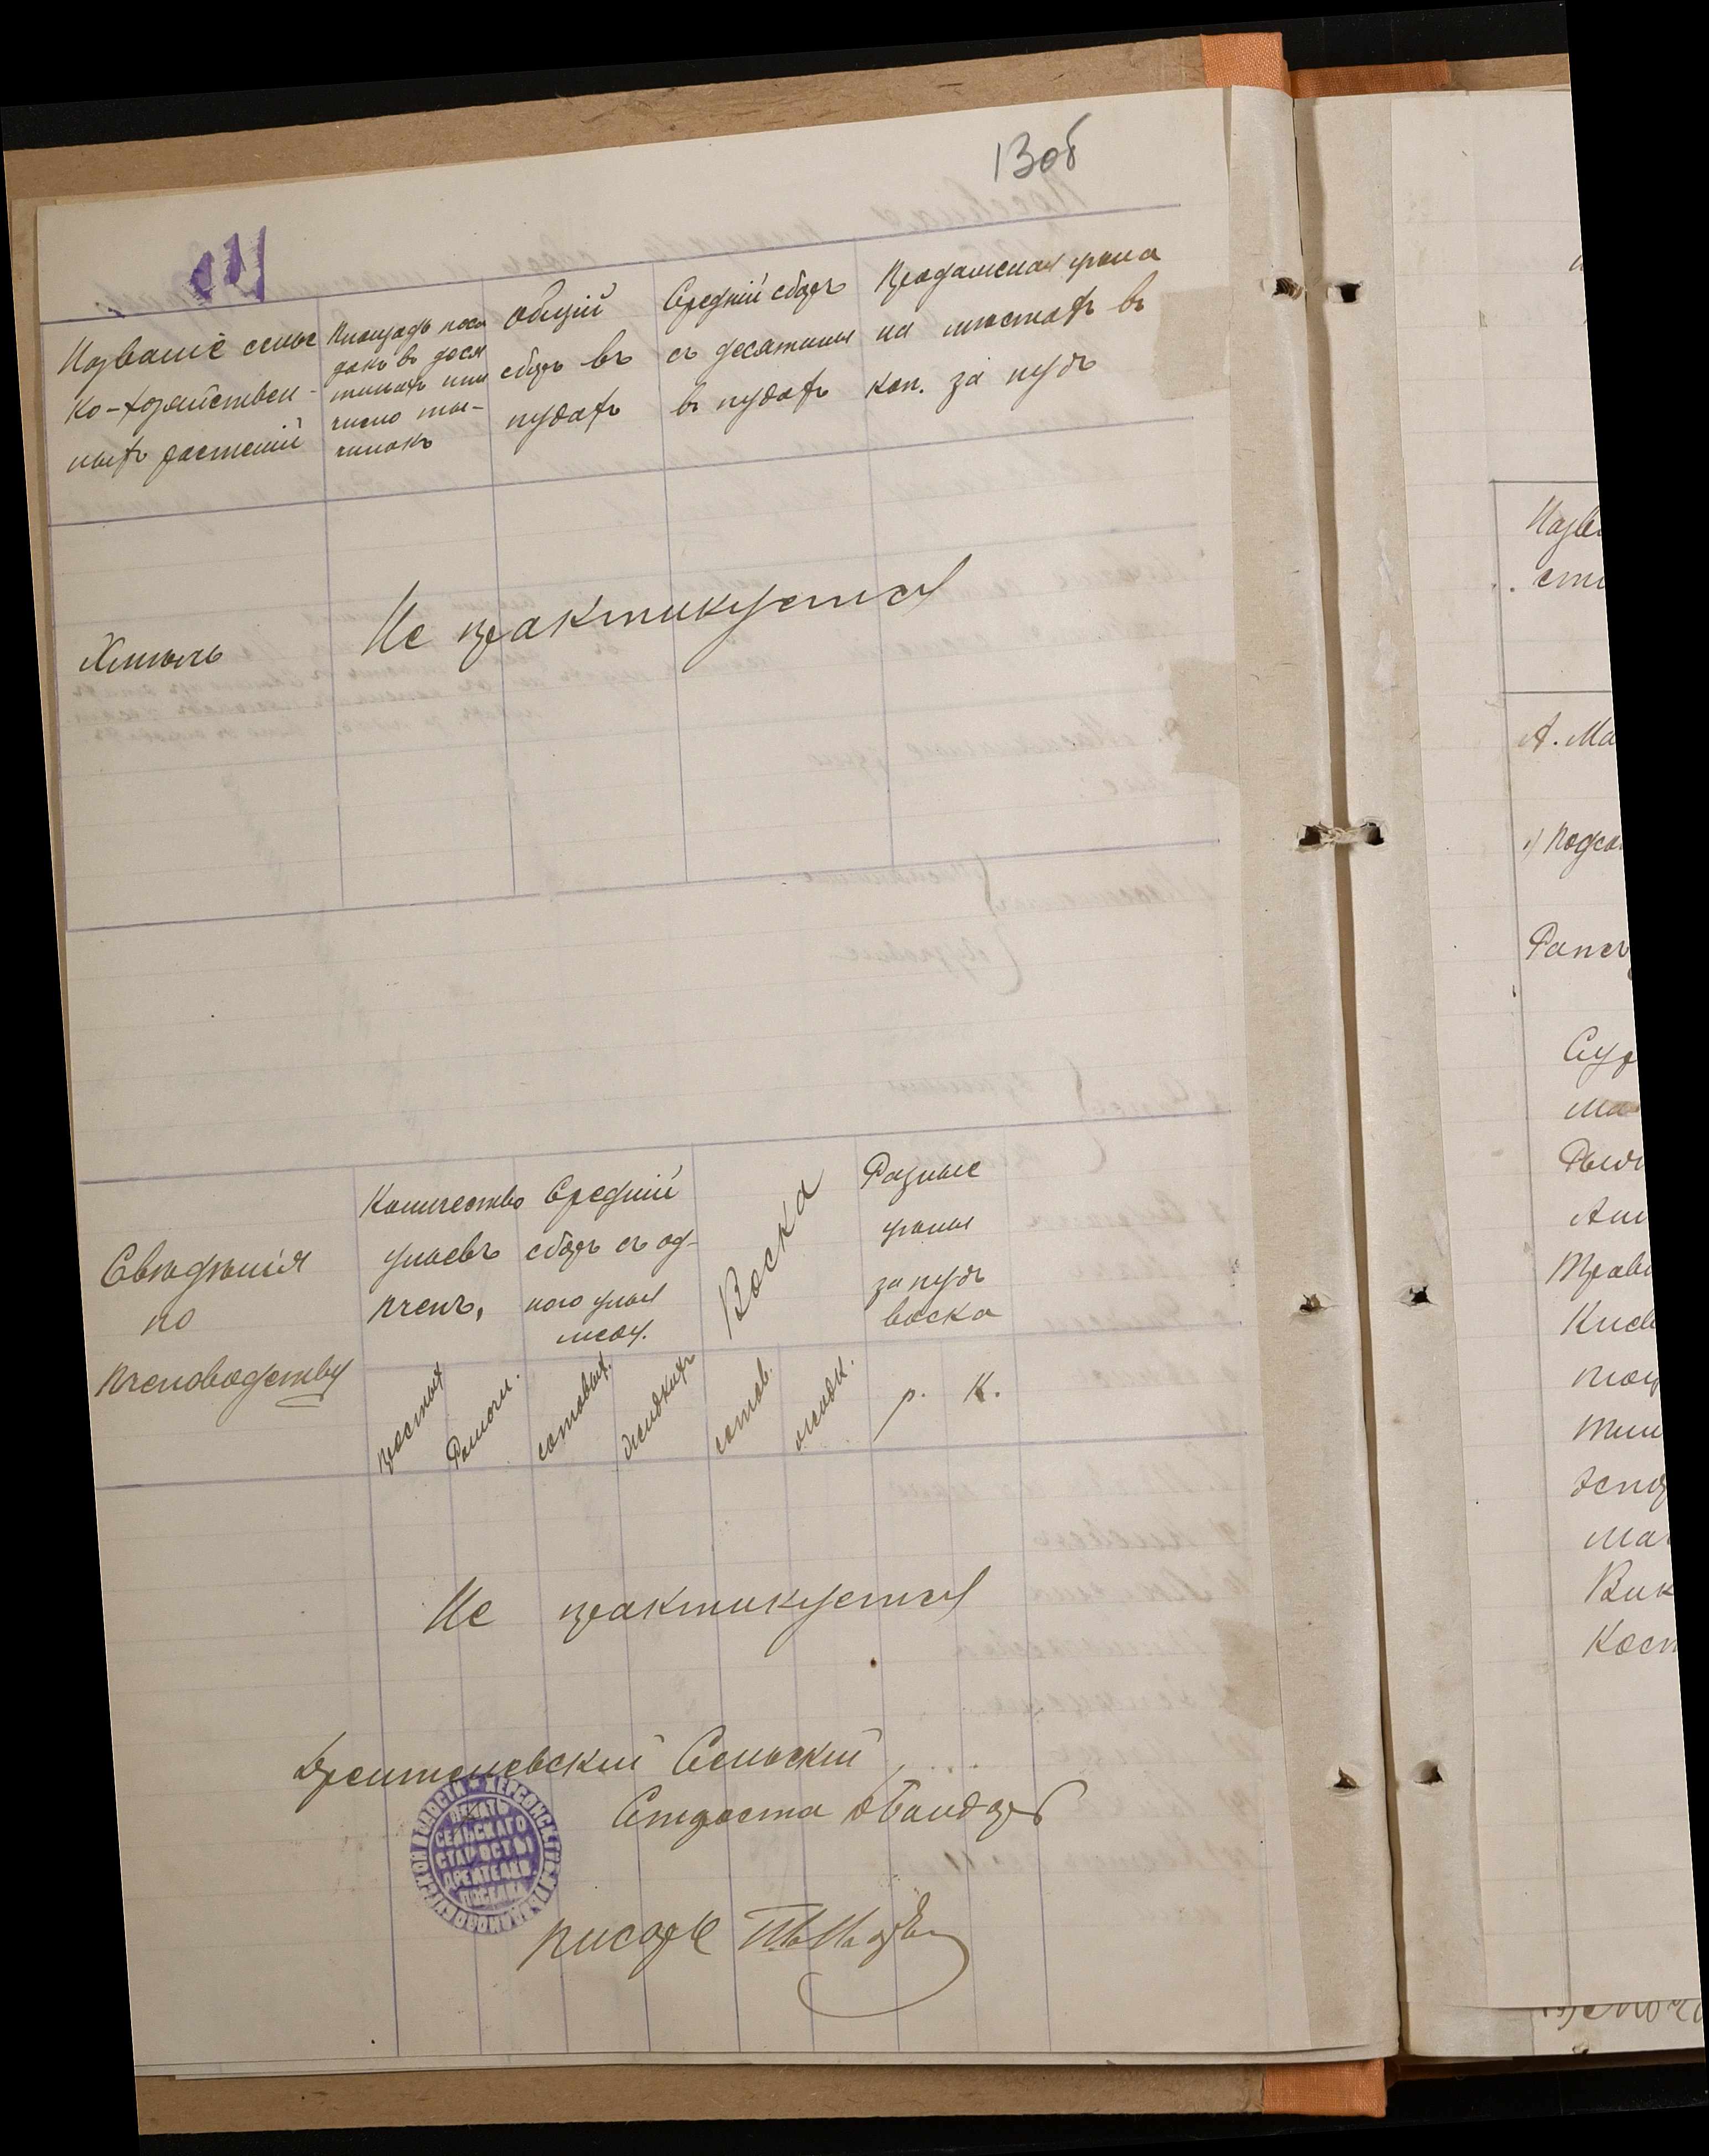 13об
Названіе сельс
ко-хозяйствен-
ныхъ растеній
Площадь поса
докъ въ деся
тинахъ или
число ты-
чинокъ
Общій
сборъ въ
пудахъ
Средній сборъ
съ десятины
въ пудахъ
Продажная цѣна
на мѣстахъ въ
коп. за пудъ
Хмѣль
Не практикуется
Свѣдѣнія
по
пчеловодству
Количество
ульевъ
пчелъ,
Средній
сборъ съ од-
ного улья
меду.
Воска
Разные
цѣны
за пудъ
воска
простыхъ
Рамочн.
сотовыхъ.
жидкихъ
сотов.
р. К.
Не практикуется
Дрейтелевскій Сельскій
Староста
ПЕЧАТЬ
СЕЛЬСКАГО
СТАРОСТЫ
ПОСЕЛКА
писарь
Назв
сти
А. Ма
1) Подсо
Рапсъ
Сур
Ма
Рыж
Ани
Трав
Кле
Тим
Эспа
Вик
Кост